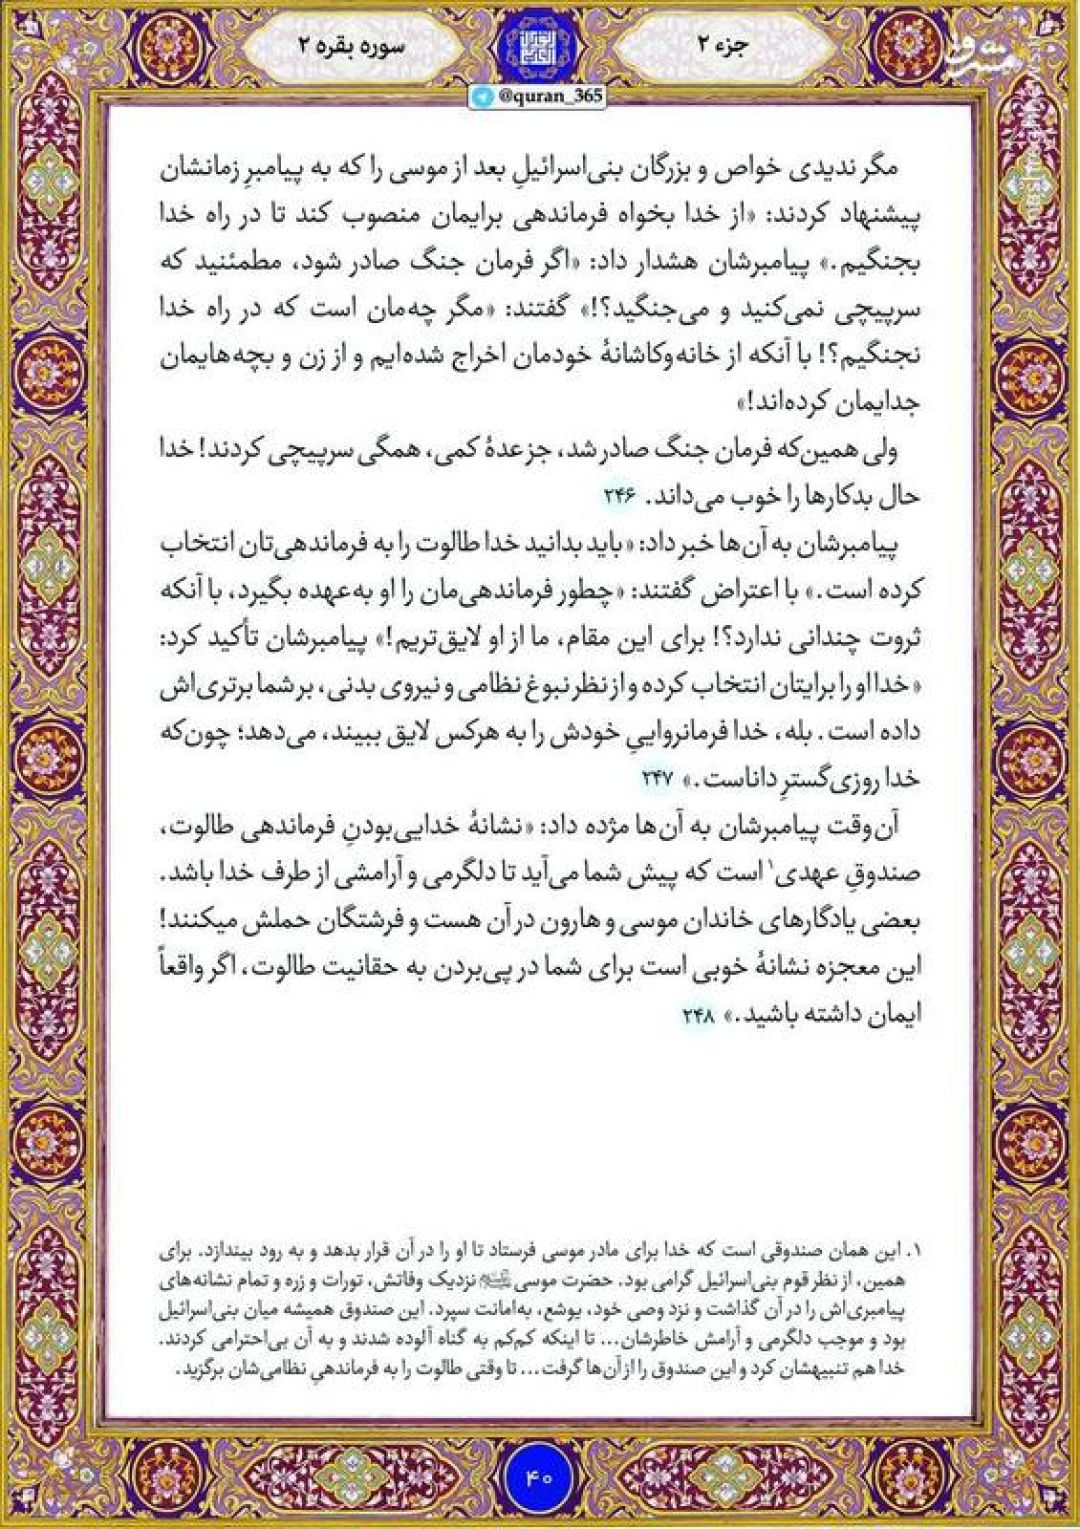 جزء ۲
سوره بقره ۲
@quran_365
مشرق
مگر ندیدی خواص و بزرگان بنی‌اسرائیلِ بعد از موسی را که به پیامبرِ زمانشان
پیشنهاد کردند: «از خدا بخواه فرماندهی برایمان منصوب کند تا در راه خدا
بجنگیم.» پیامبرشان هشدار داد: «اگر فرمان جنگ صادر شود، مطمئنید که
سرپیچی نمی‌کنید و می‌جنگید؟!» گفتند: «مگر چه‌مان است که در راه خدا
نجنگیم؟! با آنکه از خانه‌وکاشانهٔ خودمان اخراج شده‌ایم و از زن و بچه‌هایمان
جدایمان کرده‌اند!»
ولی همین‌که فرمان جنگ صادر شد، جز عدهٔ کمی، همگی سرپیچی کردند! خدا
حال بدکارها را خوب می‌داند. ۲۴۶
پیامبرشان به آن‌ها خبر داد: «باید بدانید خدا طالوت را به فرماندهی‌تان انتخاب
کرده است.» با اعتراض گفتند: «چطور فرماندهی‌مان را او به‌عهده بگیرد، با آنکه
ثروت چندانی ندارد؟! برای این مقام، ما از او لایق‌تریم!» پیامبرشان تأکید کرد:
«خدا او را برایتان انتخاب کرده و از نظر نبوغ نظامی و نیروی بدنی، بر شما برتری‌اش
داده است. بله، خدا فرمانرواییِ خودش را به هرکس لایق ببیند، می‌دهد؛ چون‌که
خدا روزی‌گسترِ داناست.» ۲۴۷
آن‌وقت پیامبرشان به آن‌ها مژده داد: «نشانهٔ خدایی‌بودنِ فرماندهی طالوت،
صندوقِ عهدی۱ است که پیش شما می‌آید تا دلگرمی و آرامشی از طرف خدا باشد.
بعضی یادگارهای خاندان موسی و هارون در آن هست و فرشتگان حملش میکنند!
این معجزه نشانهٔ خوبی است برای شما در پی‌بردن به حقانیت طالوت، اگر واقعاً
ایمان داشته باشید.» ۲۴۸
۱. این همان صندوقی است که خدا برای مادر موسی فرستاد تا او را در آن قرار بدهد و به رود بیندازد. برای
همین، از نظر قوم بنی‌اسرائیل گرامی بود. حضرت موسی نزدیک وفاتش، تورات و زره و تمام نشانه‌های
پیامبری‌اش را در آن گذاشت و نزد وصی خود، یوشع، به‌امانت سپرد. این صندوق همیشه میان بنی‌اسرائیل
بود و موجب دلگرمی و آرامش خاطرشان... تا اینکه کم‌کم به گناه آلوده شدند و به آن بی‌احترامی کردند.
خدا هم تنبیهشان کرد و این صندوق را از آن‌ها گرفت... تا وقتی طالوت را به فرماندهیِ نظامی‌شان برگزید.
۴۰